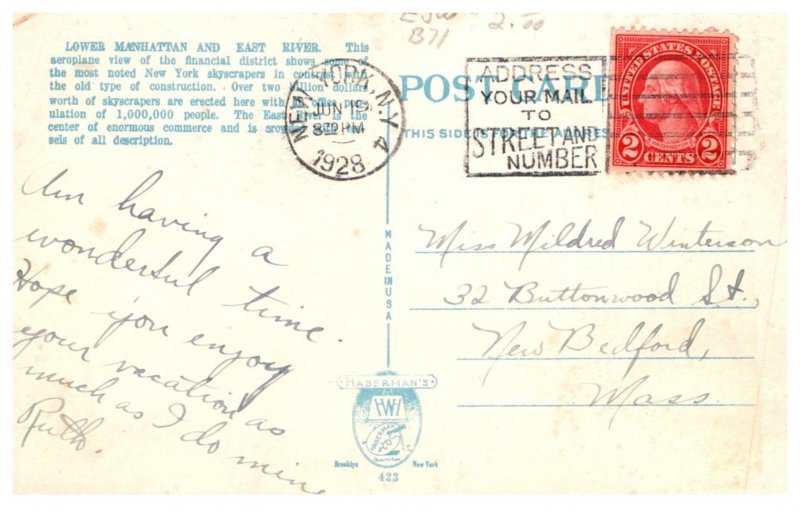 2.00
B71
LOWER MANHATTAN AND EAST RIVER. This
aeroplane view of the financial district shows some of
the most noted New York skyscrapers in contrast with
the old type of construction. Over two billion dollars
worth of skyscrapers are erected here with an office pop-
ulation of 1,000,000 people. The East River is the
center of enormous commerce and is around ves-
sels of all description.
NEW YORK, N.Y. 4
JUN 19
8 PM
1928
POST CARD
THIS SIDE FOR THE ADDRESS
ADDRESS
YOUR MAIL
TO
STREET AND
NUMBER
UNITED STATES POSTAGE
WASHINGTON
2 CENTS 2
Am having a
wonderful time.
Hope you enjoy
your vacation as
much as I do mine
Ruth.
MADE IN USA
Miss Mildred Winterson
32 Buttonwood St.,
New Bedford,
Mass.
HABERMAN'S
Brooklyn New York
423